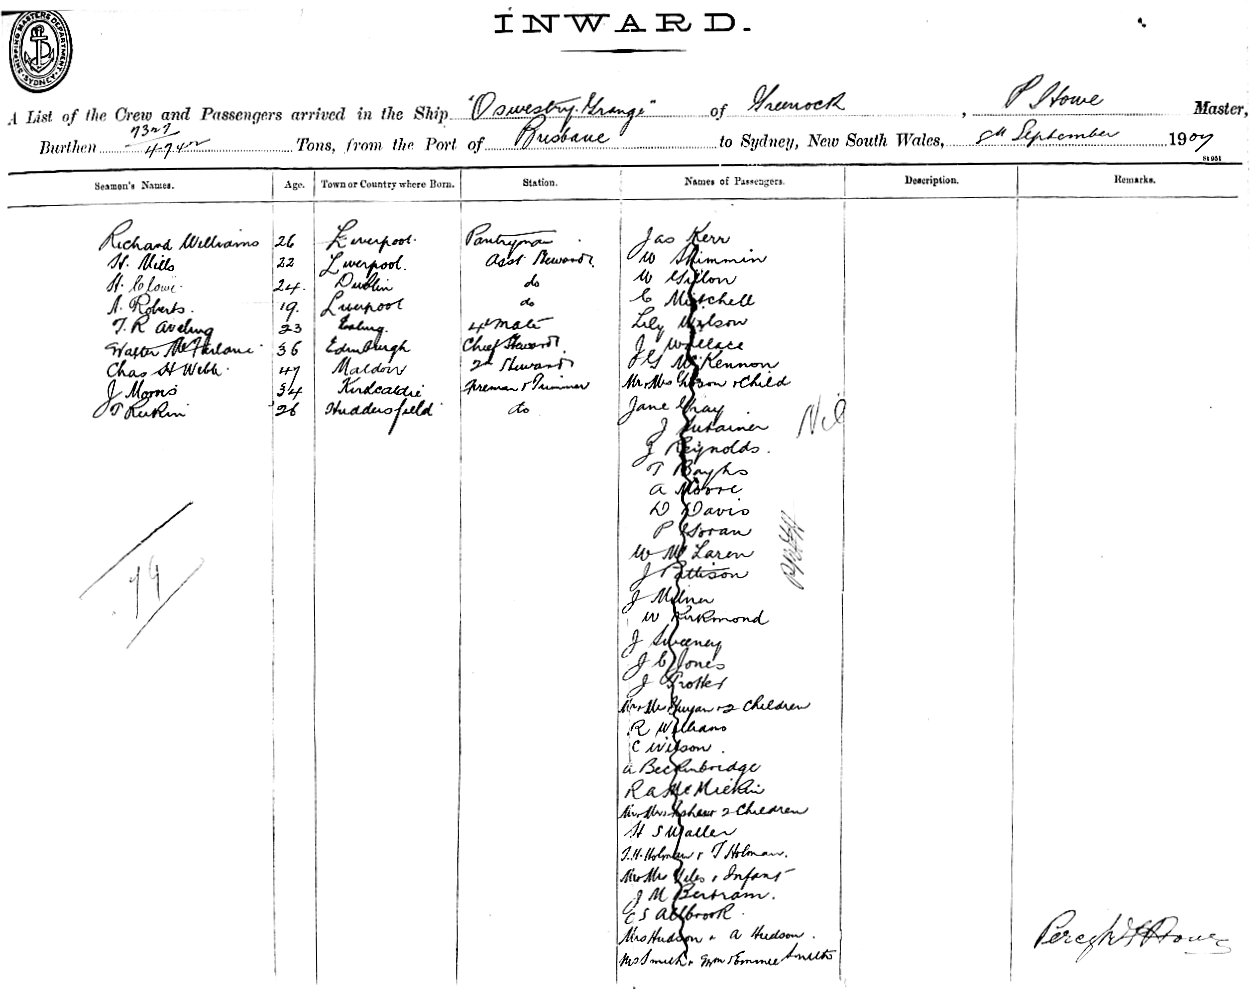 SHIPPING MASTERS DEPARTMENT SYDNEY
INWARD.
A List of the Crew and Passengers arrived in the Ship "Oswestry Grange" of Greenock, P Howe Master,
Burthen 7327 Tons, from the Port of Brisbane to Sydney, New South Wales, 8th September 1907
Seamen's Names. Age. Town or Country where Born. Station. Names of Passengers. Description. Remarks.
Richard Williams 26 Liverpool. Pantryman Jas Kerr
H. Mills 22 Liverpool. Asst Steward W Skimmin
H. Clowe 24. Dublin do W Gillon
A. Roberts. 19. Liverpool do C Mitchell
T. R Aveling 23 Ealing. 4th Mate Lily Wilson
Walter McFarlane 36 Edinburgh Chief Steward J Wallace
Chas H Webb. 47 Maldon 2nd Steward J G McKennon
J Morris 34 Kirdcaldie Fireman & Trimmer Mr & Mrs Gibson & Child
T Rifkin 26 Huddersfield do Jane Gray
Nil
J
J Reynolds.
T
A Moore
D Davis
P Horan
W McLaren
J Pattison
J Milner
W Kirkmond
79
J Sweeney
J C Jones
J Trotter
Mr & Mrs & 2 Children
R Williams
C Wilson.
A Beckinbridge
R A McMickin
Mr & Mrs & 2 Children
H S Waller
T. H. Holman & T Holman.
Mr & Mrs & Infant
J M Bertram.
E S Allbrook.
Mrs Hudson & A Hudson.
Percy H Howe
Mrs Smith & Smith